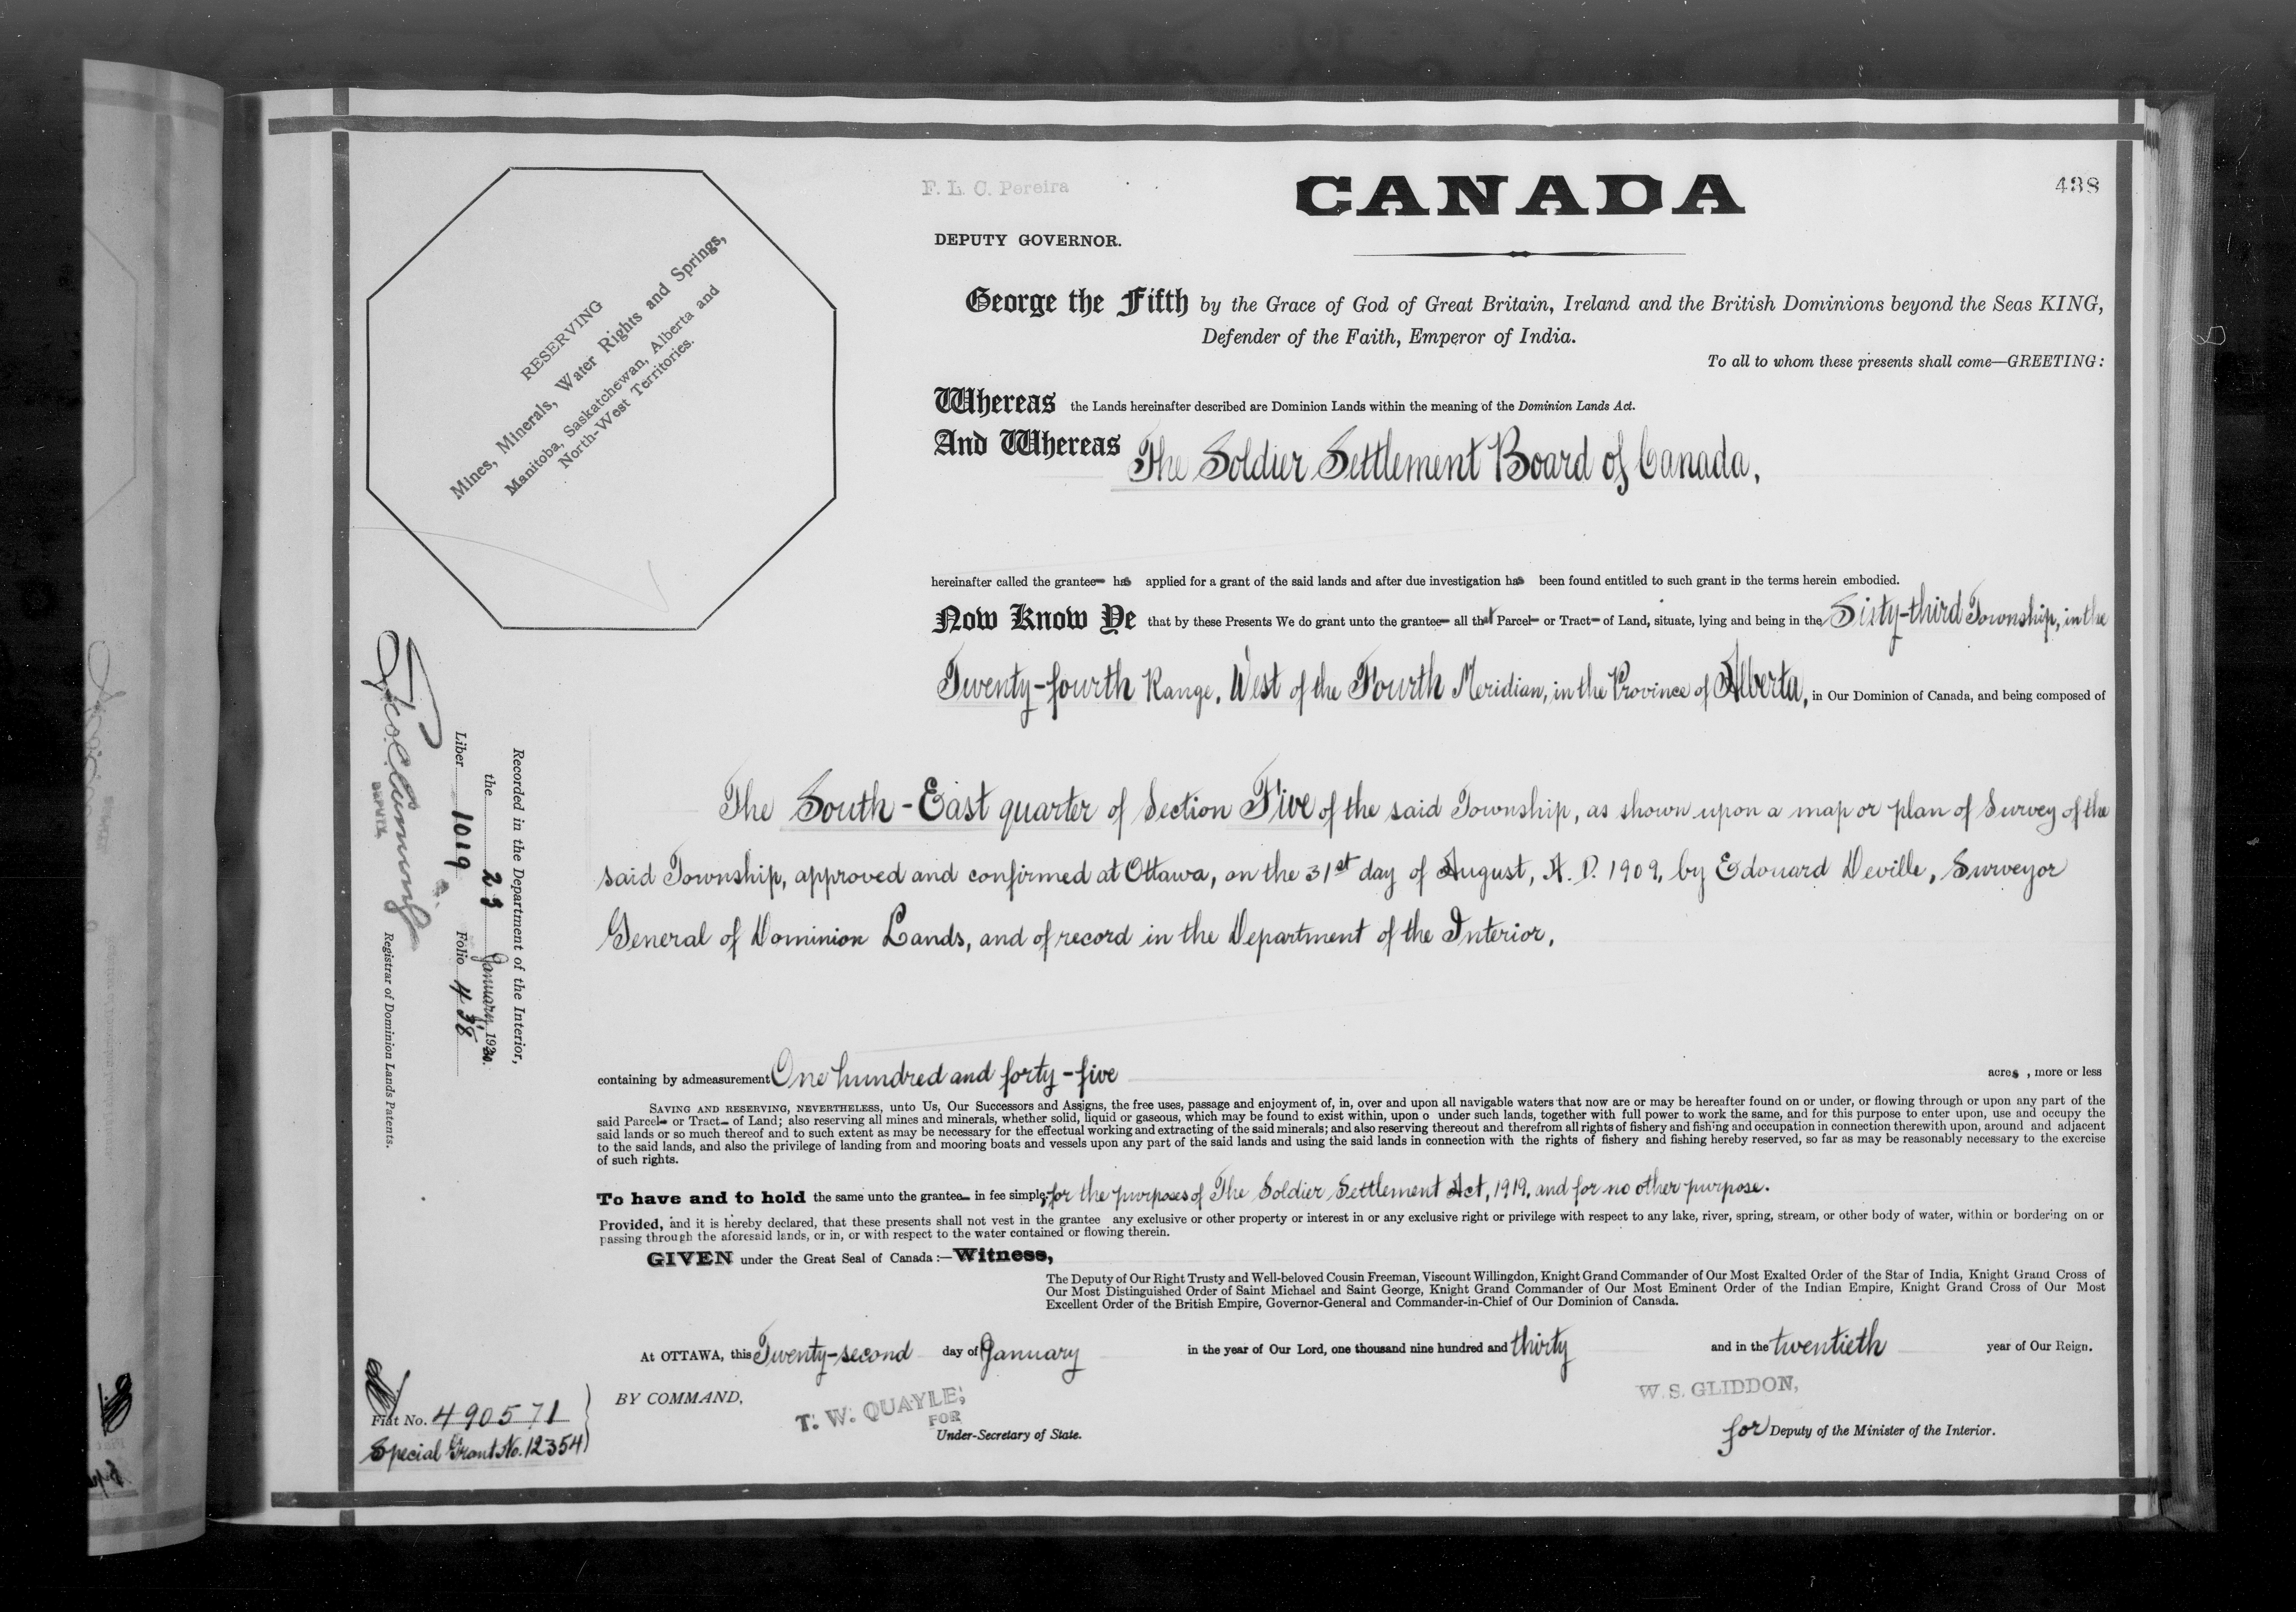 F. L. C. Pereira
CANADA
438
DEPUTY GOVERNOR.
RESERVING
Mines, Minerals, Water Rights and Springs,
Manitoba, Saskatchewan, Alberta and
North-West Territories.
George the Fifth by the Grace of God of Great Britain, Ireland and the British Dominions beyond the Seas KING,
Defender of the Faith, Emperor of India.
To all to whom these presents shall come—GREETING:
Whereas the Lands hereinafter described are Dominion Lands within the meaning of the Dominion Lands Act.
And Whereas The Soldier Settlement Board of Canada,
hereinafter called the grantee has applied for a grant of the said lands and after due investigation has been found entitled to such grant in the terms herein embodied.
Now Know Ye that by these Presents We do grant unto the grantee all that Parcel or Tract of Land, situate, lying and being in the Sixty-third Township, in the
Twenty-fourth Range, West of the Fourth Meridian, in the Province of Alberta, in Our Dominion of Canada, and being composed of
The South-East quarter of Section Five of the said Township, as shown upon a map or plan of Survey of the
said Township, approved and confirmed at Ottawa, on the 31st day of August, A. D. 1909, by Edouard Deville, Surveyor
General of Dominion Lands, and of record in the Department of the Interior,
containing by admeasurement One hundred and forty-five acres, more or less
SAVING AND RESERVING, NEVERTHELESS, unto Us, Our Successors and Assigns, the free uses, passage and enjoyment of, in, over and upon all navigable waters that now are or may be hereafter found on or under, or flowing through or upon any part of the
said Parcel or Tract of Land; also reserving all mines and minerals, whether solid, liquid or gaseous, which may be found to exist within, upon o under such lands, together with full power to work the same, and for this purpose to enter upon, use and occupy the
said lands or so much thereof and to such extent as may be necessary for the effectual working and extracting of the said minerals; and also reserving thereout and therefrom all rights of fishery and fishing and occupation in connection therewith upon, around and adjacent
to the said lands, and also the privilege of landing from and mooring boats and vessels upon any part of the said lands and using the said lands in connection with the rights of fishery and fishing hereby reserved, so far as may be reasonably necessary to the exercise
of such rights.
To have and to hold the same unto the grantee in fee simple, for the purposes of The Soldier Settlement Act, 1919, and for no other purpose.
Provided, and it is hereby declared, that these presents shall not vest in the grantee any exclusive or other property or interest in or any exclusive right or privilege with respect to any lake, river, spring, stream, or other body of water, within or bordering on or
passing through the aforesaid lands, or in, or with respect to the water contained or flowing therein.
GIVEN under the Great Seal of Canada:—Witness,
The Deputy of Our Right Trusty and Well-beloved Cousin Freeman, Viscount Willingdon, Knight Grand Commander of Our Most Exalted Order of the Star of India, Knight Grand Cross of
Our Most Distinguished Order of Saint Michael and Saint George, Knight Grand Commander of Our Most Eminent Order of the Indian Empire, Knight Grand Cross of Our Most
Excellent Order of the British Empire, Governor-General and Commander-in-Chief of Our Dominion of Canada.
At OTTAWA, this Twenty-second day of January in the year of Our Lord, one thousand nine hundred and thirty and in the twentieth year of Our Reign.
BY COMMAND,
T. W. QUAYLE,
FOR
Under-Secretary of State.
W. S. GLIDDON,
for Deputy of the Minister of the Interior.
Fiat No. 490571
Special Grant No. 12354
Recorded in the Department of the Interior,
the 23 January, 1930.
Liber 1019 Folio 438
DEPUTY
Registrar of Dominion Lands Patents.